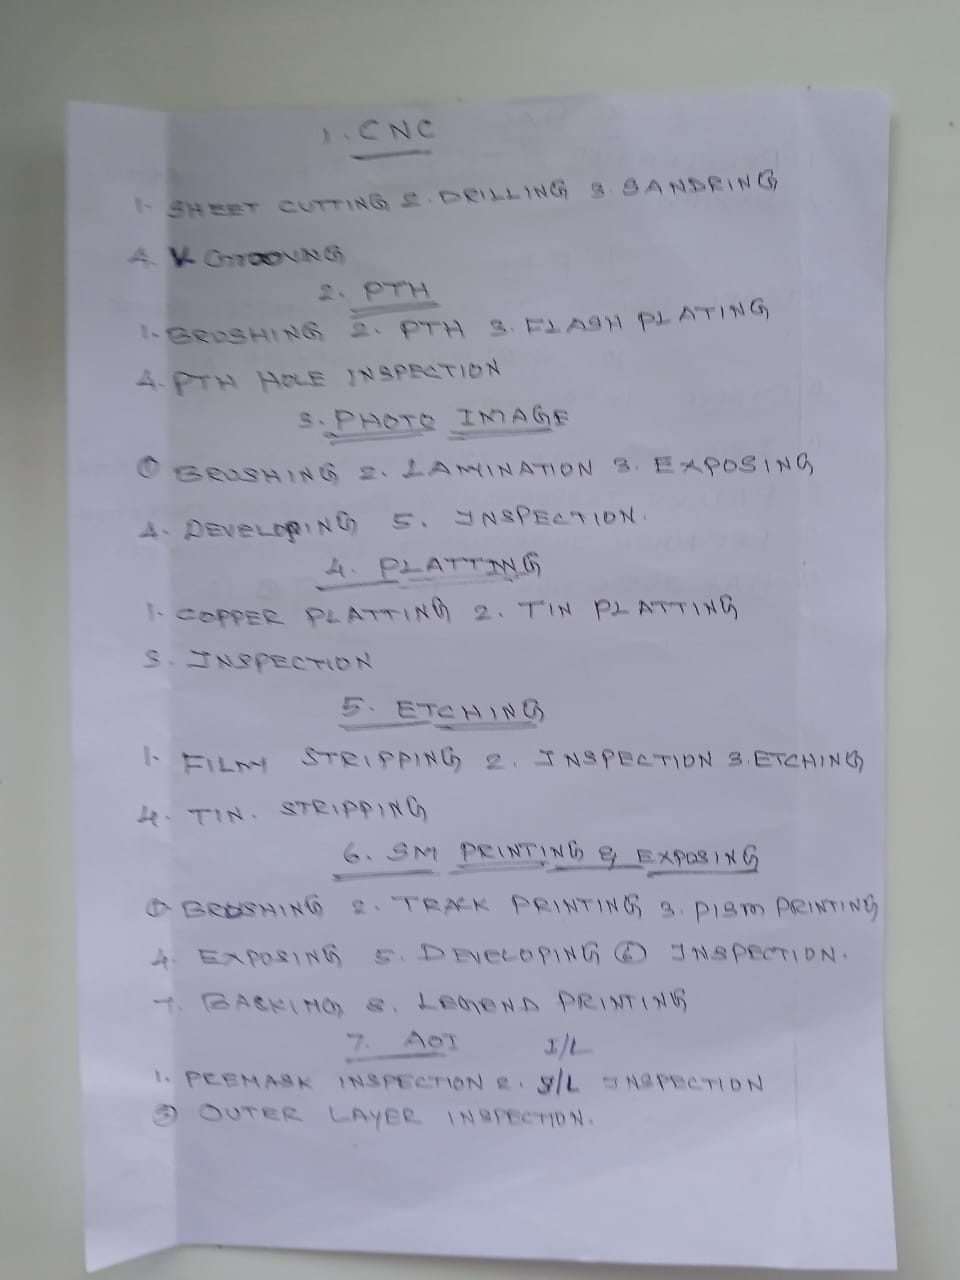 1. CNC
1. SHEET CUTTING 2. DRILLING 3. SANDRING
4. V GROOVING
2. PTH
1. BRUSHING 2. PTH 3. FLASH PLATING
4. PTH HOLE INSPECTION
3. PHOTO IMAGE
① BRUSHING 2. LAMINATION 3. EXPOSING
4. DEVELOPING 5. INSPECTION.
4. PLATTING
1. COPPER PLATTING 2. TIN PLATTING
3. INSPECTION
5. ETCHING
1. FILM STRIPPING 2. INSPECTION 3. ETCHING
4. TIN. STRIPPING
6. SM PRINTING & EXPOSING
① BRUSHING 2. TRACK PRINTING 3. PISM PRINTING
4. EXPOSING 5. DEVELOPING ⑥ INSPECTION.
7. BAKING 8. LEGEND PRINTING
7. AOI I/L
1. PREMASK INSPECTION 2. I/L INSPECTION
③ OUTER LAYER INSPECTION.